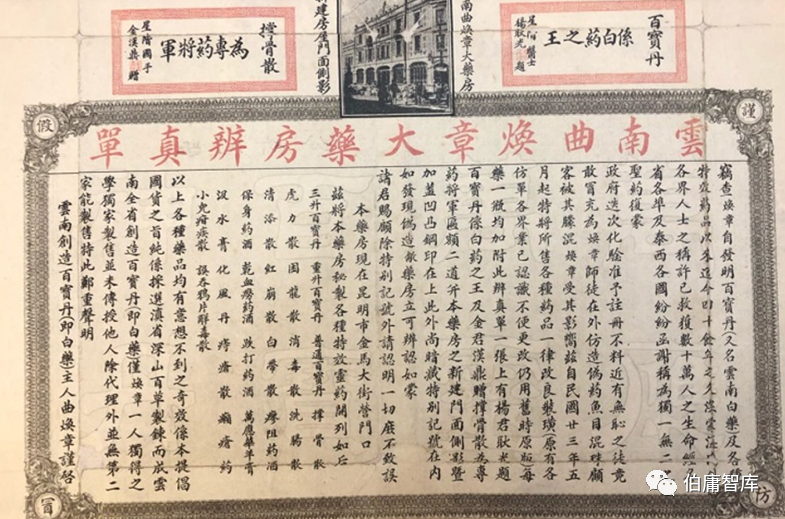 百寶丹
係白藥之王
楊耿光題
南曲煥章大藥房
建房屋門面側影
撑骨散
為專藥將軍
星階國手
金漢鼎贈
謹
防
假
冒
雲南曲煥章大藥房辨真單
竊查煥章自發明百寶丹(又名雲南白藥)及各
特效藥品以來迄今四十餘年之久深蒙海
各界人士之稱許已救獲數十萬人之生命經
省各埠及泰西各國紛紛函謝稱為獨一無二
聖藥復蒙
政府迭次化驗准予註冊不料近有無恥之徒竟
敢冒充為煥章師徒在外仿造偽藥魚目混珠顧
客被其朦混煥章受其影嚮茲自民國廿三年五
月起特將所售各種藥品一律改良裝璜(原有各
仿單各界業已認識不便更改仍用舊時原版)每
藥一徴均加附此辨真單一張上有楊君耿光題
百寶丹係白藥之王及金君漢鼎贈撑骨散為專
藥將軍區額二道并本藥房之新建門面側影暨
加蓋凹凸鋼印在上此外尚暗藏特別記號在內
如發現偽造敝藥房立可辨認如蒙
請君賜顧除特別記號外請認明一切庶不致誤
本藥房現在昆明市金馬大街營門口
茲將本藥房秘製各種特效靈藥開列如后
三升百寶丹 重升百寶丹 普通百寶丹 撑骨散
虎力散 固龍散 消毒散 洗腸散
清添散 紅崩散 白帶散 瘳阻藥酒
保身藥酒 乾血癆藥酒 跌打藥酒 萬應華羊膏
汲水膏 化風丹 痔瘡散 癩瘡藥
小兒疳疾散 誤吞鴉片解毒散
以上各種藥品均有意想不到之奇效係本提倡
國貨之旨純係採選滇省深山百草製鍊而成雲
南全省創造百寶丹(即白藥)僅煥章一人獨得之
學獨家製售並未傳授他人除代理外並無第二
家能製售特此鄭重聲明
雲南創造百寶丹(即白藥)主人曲煥章謹啓
伯庸智库